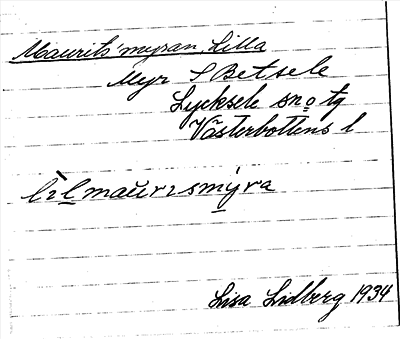 Maurits'myran, Lilla
Myr S Betsele
Lycksele sn o tg
Västerbottens l
lìlmaurismýra
Lisa Lidberg 1934